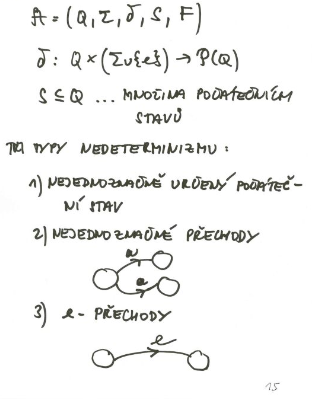 A = (Q, Σ, δ, S, F)
δ: Q × (Σ∪{e}) → P(Q)
S ⊆ Q ... MNOŽINA POČÁTEČNÍCH
STAVŮ
TŘI TYPY NEDETERMINIZMU:
1) NEJEDNOZNAČNĚ URČENÝ POČÁTEČ-
NÍ STAV
2) NEJEDNOZNAČNÉ PŘECHODY
a
a
3) e - PŘECHODY
e
15